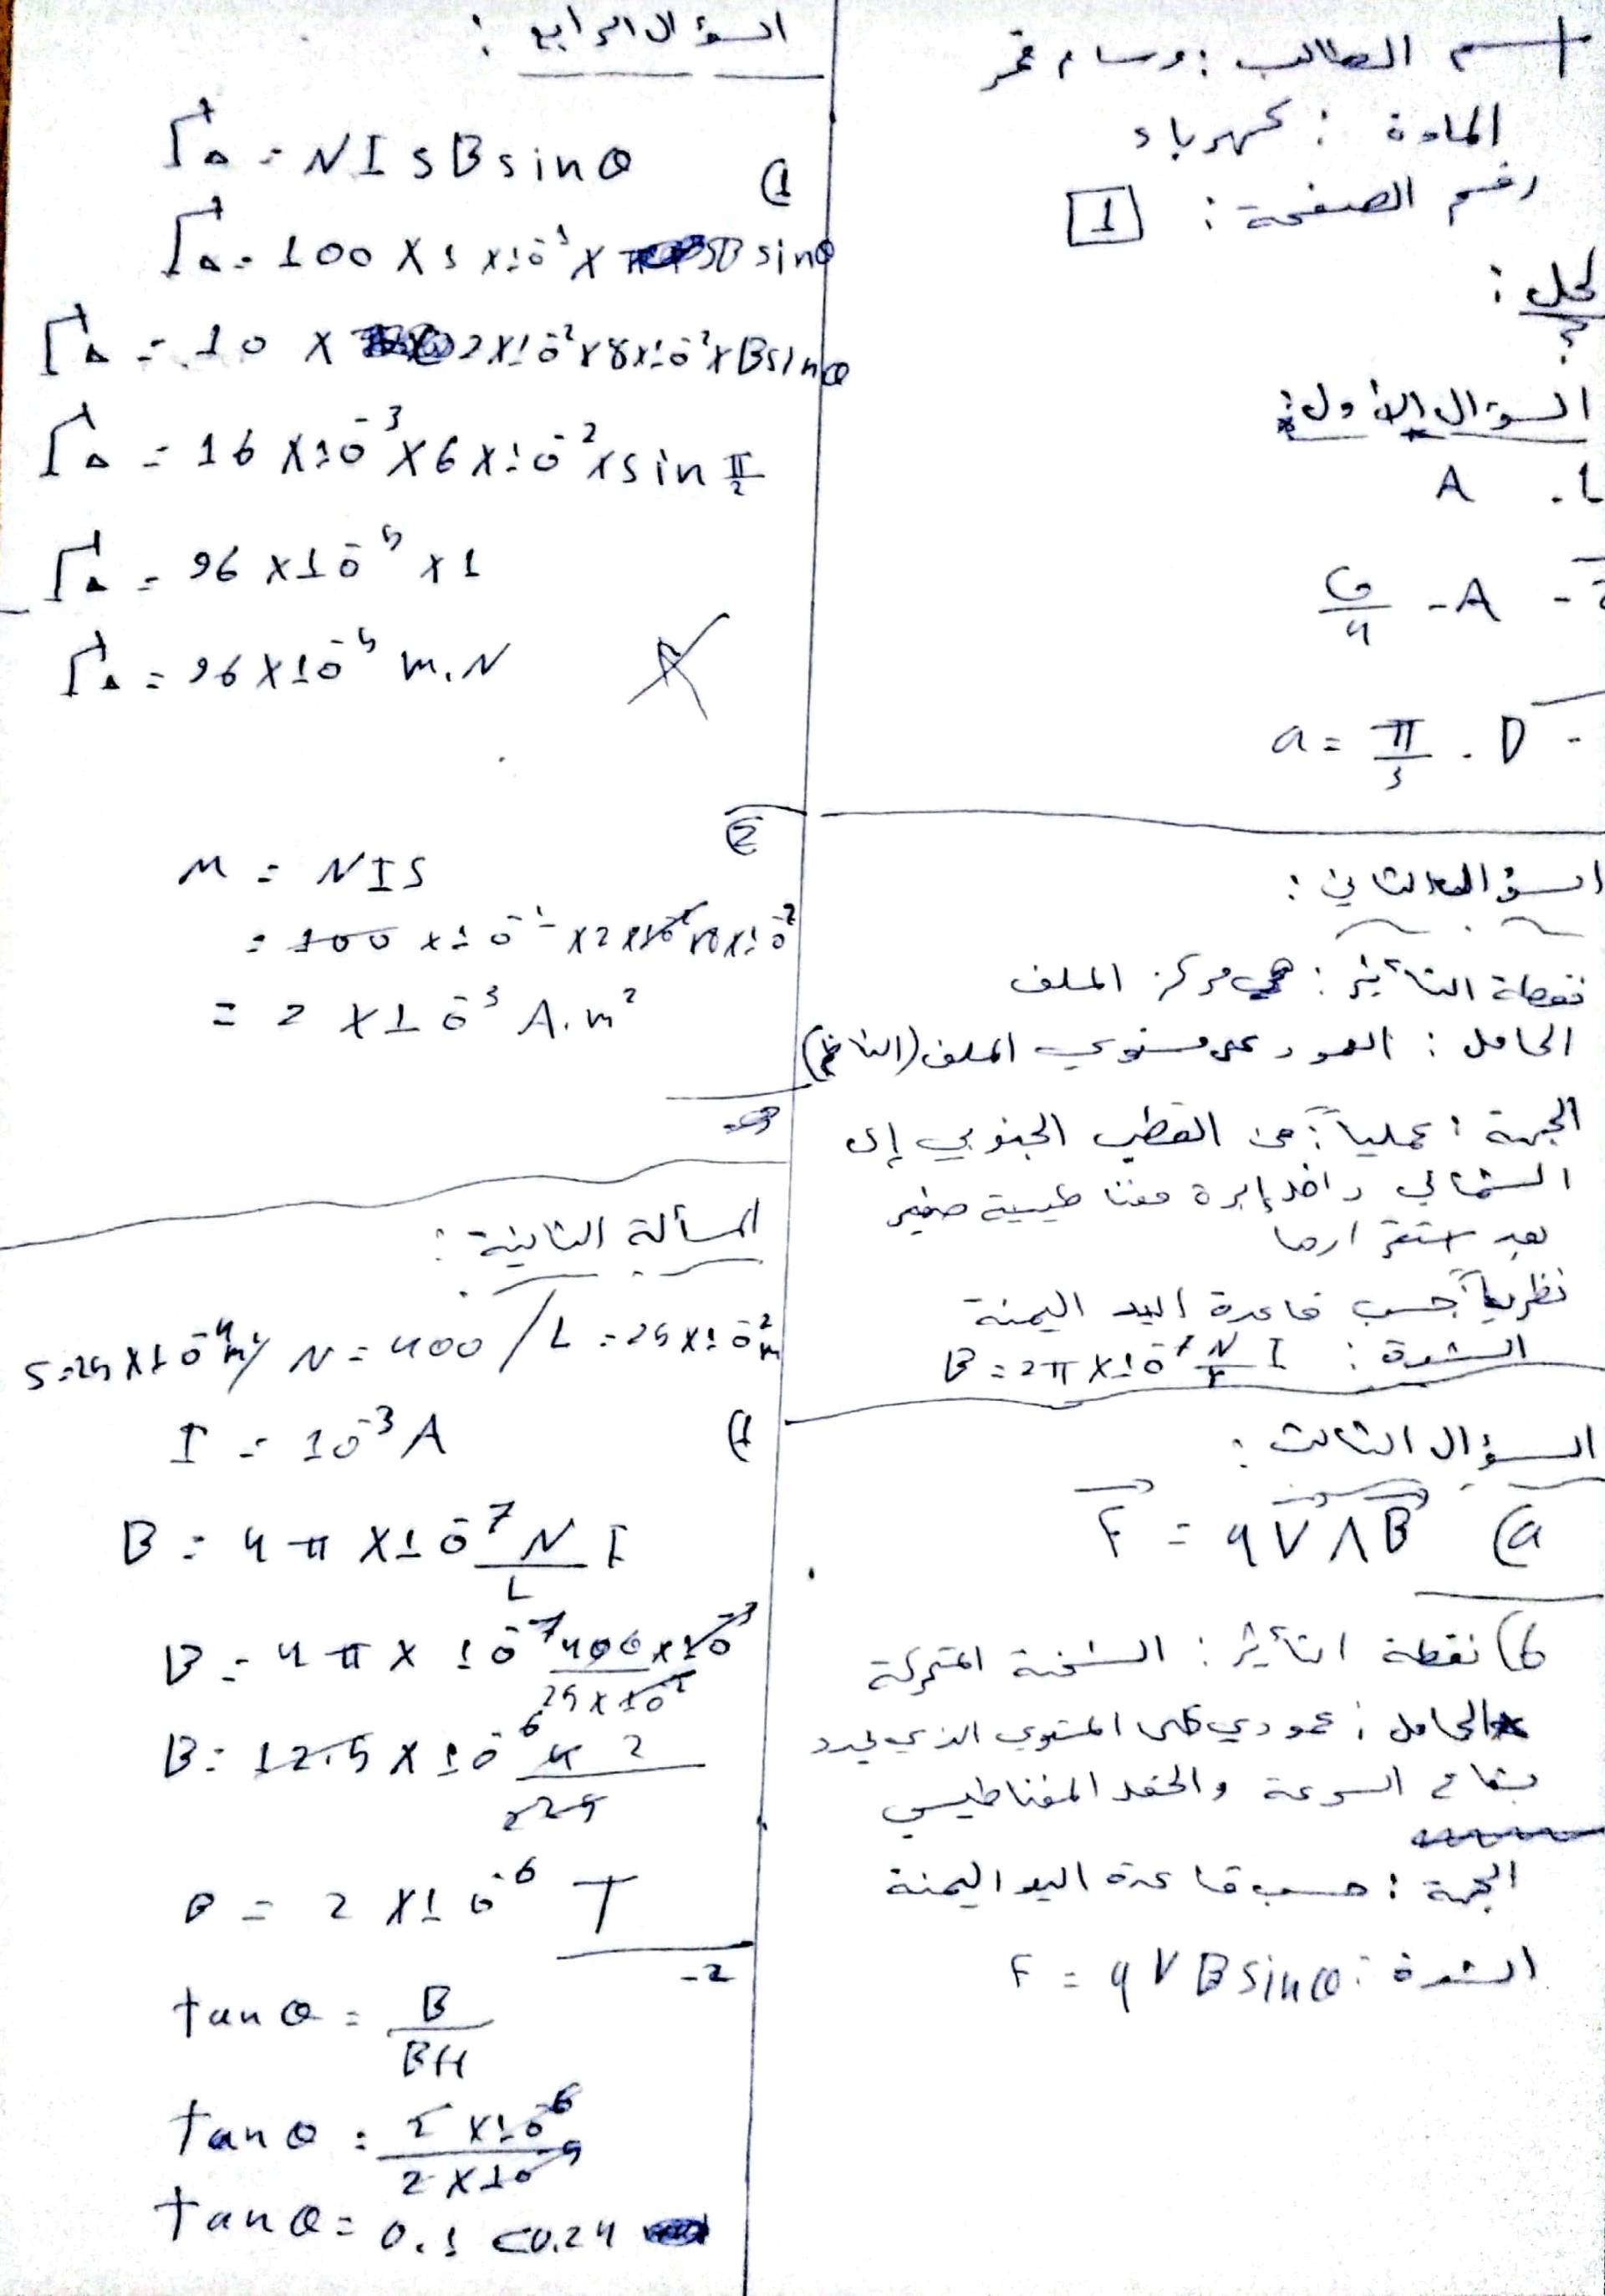 اسم الطالب : وسام قمر
المادة : كهرباء
رقم الصفحة : 1
الحل :
السؤال الأول :
A .1
G/4 - A - 2
a = π/3 . D -
السؤال الثاني :
نقطة التأثير : هي مركز الملف
الحامل : العمود على مستوي الملف (الناظم)
الجهة : عملياً : من القطب الجنوبي إلى
الشمالي داخل إبرة مغناطيسية صغيرة
بعد استقرارها
نظرياً : حسب قاعدة اليد اليمنة
الشدة : B = 2π × 10⁻⁷ N/r I
السؤال الثالث :
a) F = q V ∧ B
b) نقطة التأثير : الشحنة المتحركة
الحامل : عمودي على المستوي الذي يحدد
بشعاع السرعة والحقل المغناطيسي
الجهة : حسب قاعدة اليد اليمنة
الشدة : F = q V B sinθ
السؤال الرابع :
1) Γ∆ = N I S B sinθ
Γ∆ = 100 × 1 × 10⁻¹ × SB sinθ
Γ∆ = 10 × 2 × 10⁻² × 8 × 10⁻² × B sinθ
Γ∆ = 16 × 10⁻³ × 6 × 10⁻² × sin π/2
Γ∆ = 96 × 10⁻⁵ × 1
Γ∆ = 96 × 10⁻⁵ m.N
2)
M = NIS
= 100 × 10⁻¹ × 2 × 10⁻² × 8 × 10⁻²
= 2 × 10⁻³ A.m²
المسألة الثانية :
S = 25 × 10⁻⁴ m² / N = 400 / L = 25 × 10⁻² m
1) I = 10⁻³ A
B = 4π × 10⁻⁷ N/L I
B = 4π × 10⁻⁷ 400 × 10⁻³ / 25 × 10⁻²
B = 12.5 × 10⁻⁶ 4 2 / 225
B = 2 × 10⁻⁶ T
-2
tan θ = B / BH
tan θ = 2 × 10⁻⁶ / 2 × 10⁻⁵
tan θ = 0.1 < 0.24